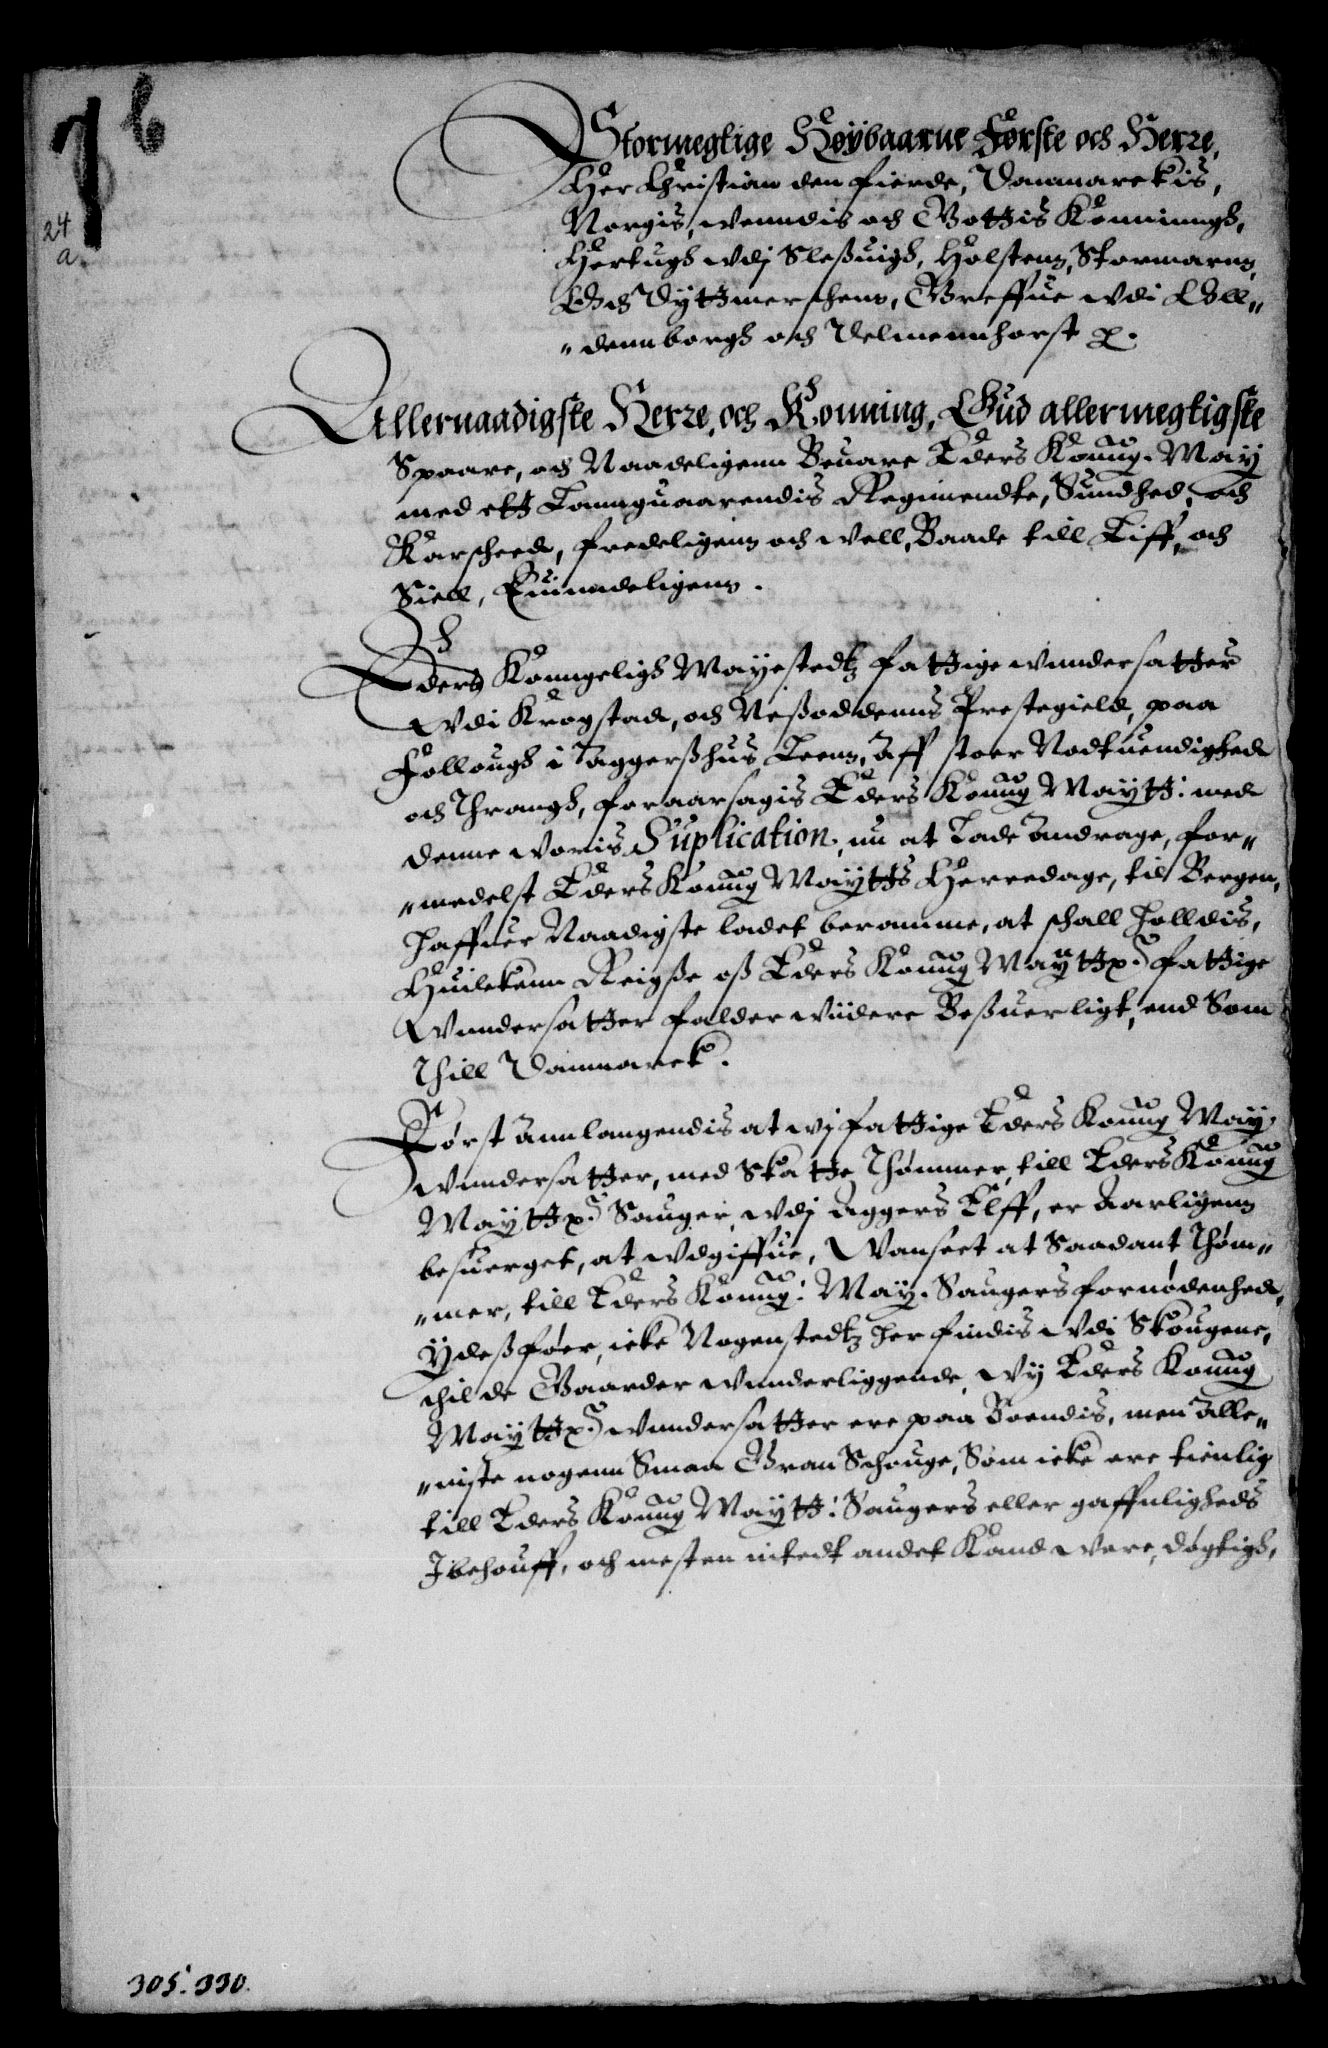 b
24
a
Stormegtige Høÿbaarne Første och Herre,
Her Christian den fierde, Danmarckis,
Norgis, wenndis och Gottis Konningh,
Hertugh wdj Sleßuigh, Holstenn, Stormarnn,
Och Dÿttmerschenn, Greffue wdi Oll„
„dennborgh och Delmennhorst ꝛc.
Allernaadigste Herre, och Konning, Gud allermegtigste
Spaare, och Naadeligenn Beuare Eders Konng. May
med ett Lannguaarendis Regimendte, Sundhed, och
Karscheed, fredeligenn och well, Baade till Liff, och
Siell, Euinndeligenn.
Eders Konngeligh Mayestedtz fattige wnndersatter
wdi Krogstad, och Neßoddenns Prestegield, paa
Follough i Aggerßhus Leenn, Aff stoer Nodtuendighed
och Thrangh, foraarsagis Eders Konng Maytt: med
denne woris Suplication, nu at Lade Andrage, for„
„medelst Eders Konng Maÿtts Herredage, til Bergen,
haffuer Naadigste ladet beramme, at schall holldis,
Huilckenn Reigße oß Eders Konng Maÿttz fattige
Wnndersatter falder wiidere Beßuerligt, end Som
Thill Danmarck.
Først Annlangendis at wj fattige Eders Konng May
wnndersatter, med Skatte Thømmer, till Eders Konng
Mayttz Sauger, wdj Aggers Elff, er Aarligenn
besuerget, at wdgiffue, Wanseet at Saadant Thøm„
„mer, till Eders Konng: Maÿ. Saugers fornødenhed,
Ÿdeß føer, icke Nogenstedtz her findis wdi Skougene,
thil de Gaarder wnnderliggende, wÿ Eders Konng
Mayttz wnndersatter ere paa Boendis, men Alle„
„niste nogenn Smaa Gran Schouge, Som icke ere tienlig
till Eders Konng Maytt: Saugers eller gaffnligheds
Jbehouff, och mesten intedt andet Kand were døgtigh,
305. 330.